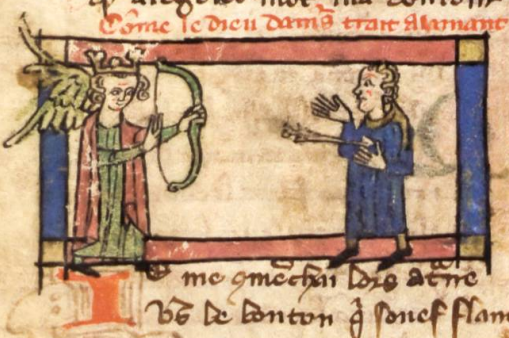 Cõme le dieu dam's trait alamant
IE me 9mẽchai lors atr̃ie
Vs le bouton q̃ souef flan